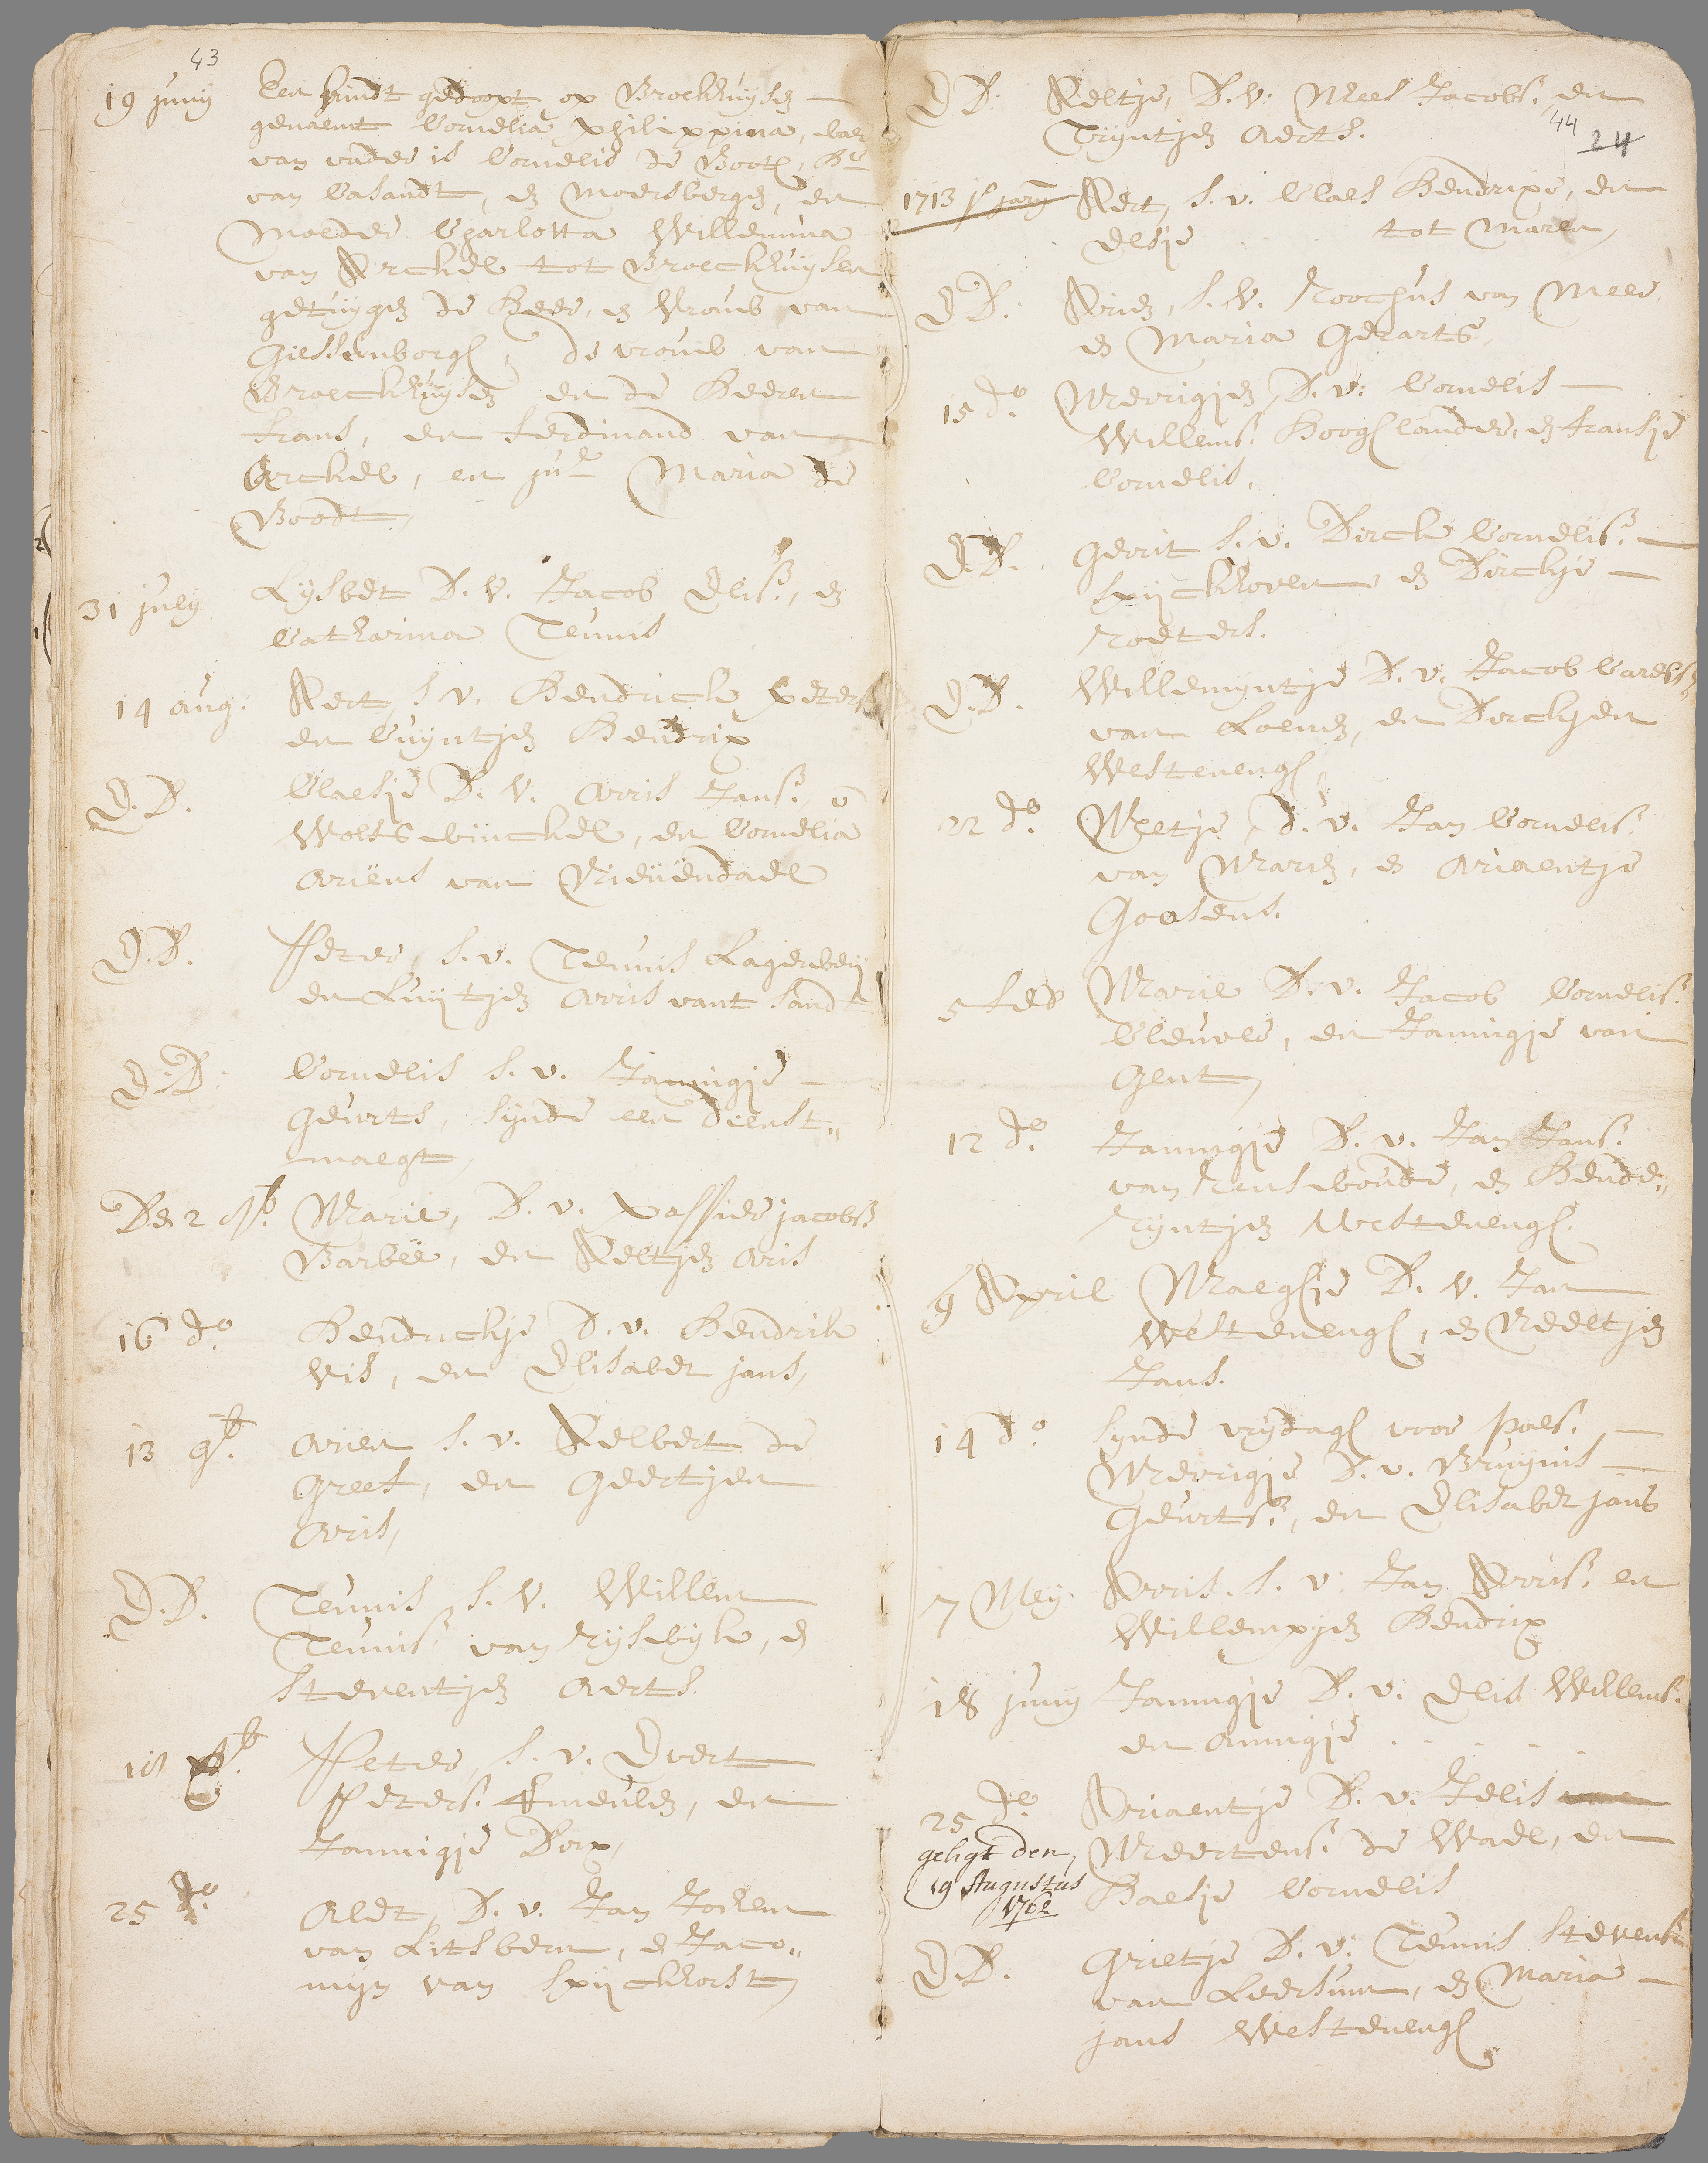 43
19 junij Een kindt gedoopt op Broekhuysen
genaemt Cornelia Philippina, daer
van vader is Cornelis de Boot, Hr
van Casandt, en Moersbergen, en
Moeder Charlotta Willemina
van Arckel tot Broeckhuysen
getuygen de Heer, en Vrouw van
Giessenborgh, de vrouw van
Broeckhuysen en de Heeren
Frans, en Ferdinand van
Arckel, en jur Maria de
Boodt
31 july Lysbet D. V. Jacob Elis:, en
Catharina Teunis
14 aug: Aert S. v. Hendrick Peters
en Cuyntjen Hendrix
D. D. Claesje D. V. Arris Jans: v
Wolfswinckel, en Cornelia
Ariens van Nieuendael
D. D. Peter, S. v. Teunis Lagerwey
en Luijtjen Arris vant Sandt
D. D. Cornelis S. v. Jannigje
Geurts, synde een dienst„
maegt
Den 2 8b. Marie, D. v. Passier jacobs:
Barbee, en Neeltjen Aris
16 do Hendrickje D. v. Hendrik
Vis, en Elisabet jans,
13 9b. Arien S. v. Aelbert de
Greef, en Geertjen
Arris,
D. D. Teunis S. V. Willem
Teunis: van Rijswijk, en
Steventjen Aerts.
18 Peter, S. v. Evert
Peters: Emeulen, en
Jannigje Dirx,
25 do Alet, D. v. Jan Jochem
van Litsbern, en Jaco„
mijn van Spijckhorst
D. D. Neeltje, D. V: Mees Jacobs: en
Trijntjen Aerts.
44 24
1713 1 jary Aert, S. v. Claes Hendrixe, en
Elsje . . . tot Maren,
D D. Arien, S. V. Roochus van Meer,
en Maria Gerarts,
15 do. Merrigjen, D. v: Cornelis
Willems: Hooghlander, en Fransje
Cornelis.
D. D. Gerrit S. v. Dirck Cornelis:
Spijckhoven, en Dirckje
Roeters.
D. D. Willemyntje D. v. Jacob Carels:
van Loenen, en Dirckjen
Westenengh,
22 do. Metje, D. v. Jan Cornelis:
van Maren, en Ariaentje
Goosens.
5 feb Marie D. v. Jacob Cornelis:
Cleuver, en Jannigje van
Gent,
12 do. Jannigje D. v. Jan Jans:
van Renswoude, en Hende„
rijntjen Westenengh.
9 April Maeghje D. V. Jan
Westenengh, en Neeltjen
Jans.
14 do. synde vrydagh voor Paes:
Merrigje D. v. Bruynis
Geurts:, en Elisabet jans
7 Mey. Arris. S. v. Jan Arris: en
Willempjen Hendrix
18 juny Jannigje D. v. Elis Willems:
en Annigje . . . . .
25 do. Ariaentje D. v. Jelis van
Meertens: de Wael, en
Baesje Cornelis
geligt den
19 Augustus
1762
D. D. Grietje D. v: Teunis Stevens:
van Leersum, en Maria
jans Westenengh